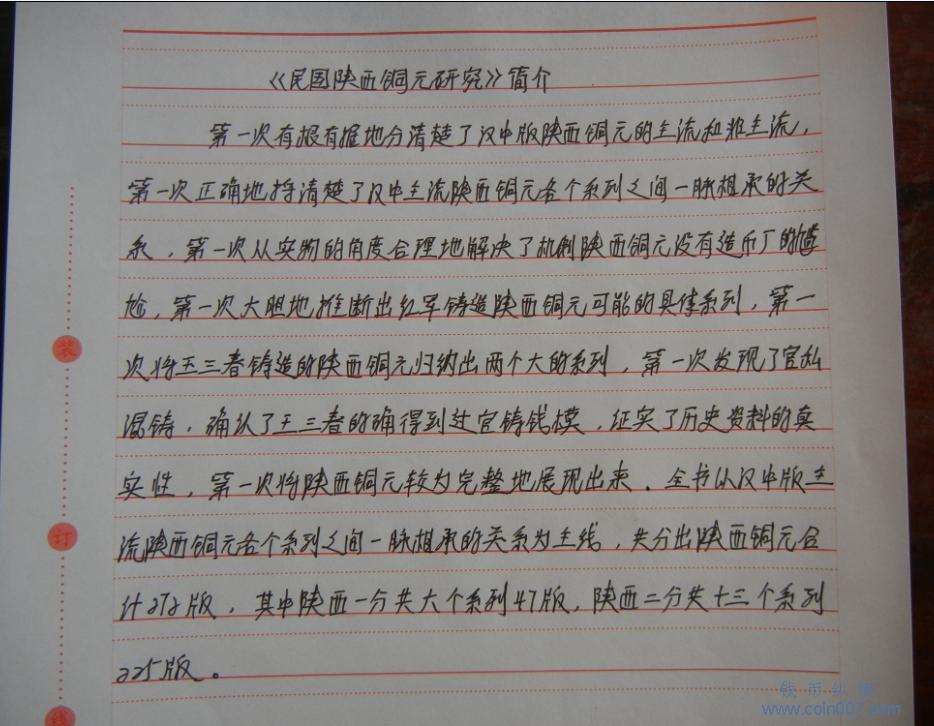 《民国陕西铜元研究》简介
第一次有根有据地分清楚了汉中版陕西铜元的主流和非主流，
第一次正确地捋清楚了汉中主流陕西铜元各个系列之间一脉相承的关
系，第一次从实物的角度合理地解决了机制陕西铜元没有造币厂的尴
尬，第一次大胆地推断出红军铸造陕西铜元可能的具体系列，第一
次将王三春铸造的陕西铜元归纳出两个大的系列，第一次发现了官私
混铸，确认了王三春的确得到过官铸钱模，证实了历史资料的真
实性，第一次将陕西铜元较为完整地展现出来。全书以汉中版主
流陕西铜元各个系列之间一脉相承的关系为主线，共分出陕西铜元合
计272版，其中陕西一分共六个系列47版，陕西二分共十三个系列
225版。
装
订
线
钱币纵横
www.coin007.com